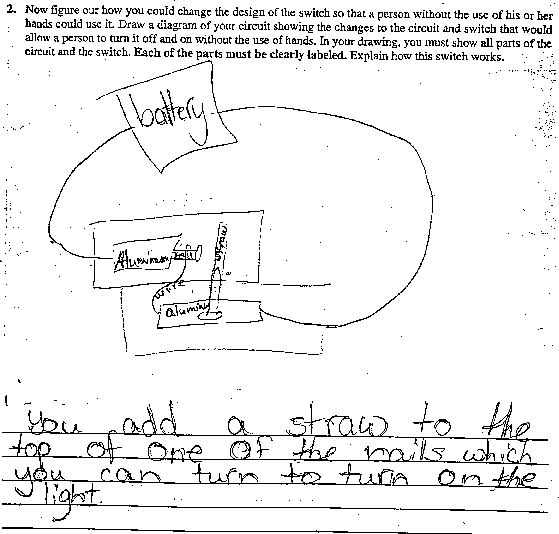 2. Now figure out how you could change the design of the switch so that a person without the use of his or her
hands could use it. Draw a diagram of your circuit showing the changes to the circuit and switch that would
allow a person to turn it off and on without the use of hands. In your drawing, you must show all parts of the
circuit and the switch. Each of the parts must be clearly labeled. Explain how this switch works.
battery
straw
Aluminum
nail
wire
alumin
You add a straw to the
top of one of the nails which
you can turn to turn on the
light.